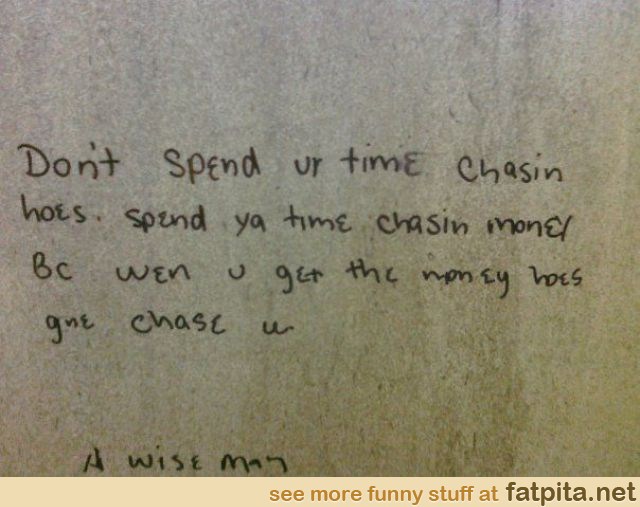 Don't spend ur time chasin
hoes. spend ya time chasin money
Bc wen u get the money hoes
gne chase u
A wise man
see more funny stuff at fatpita.net